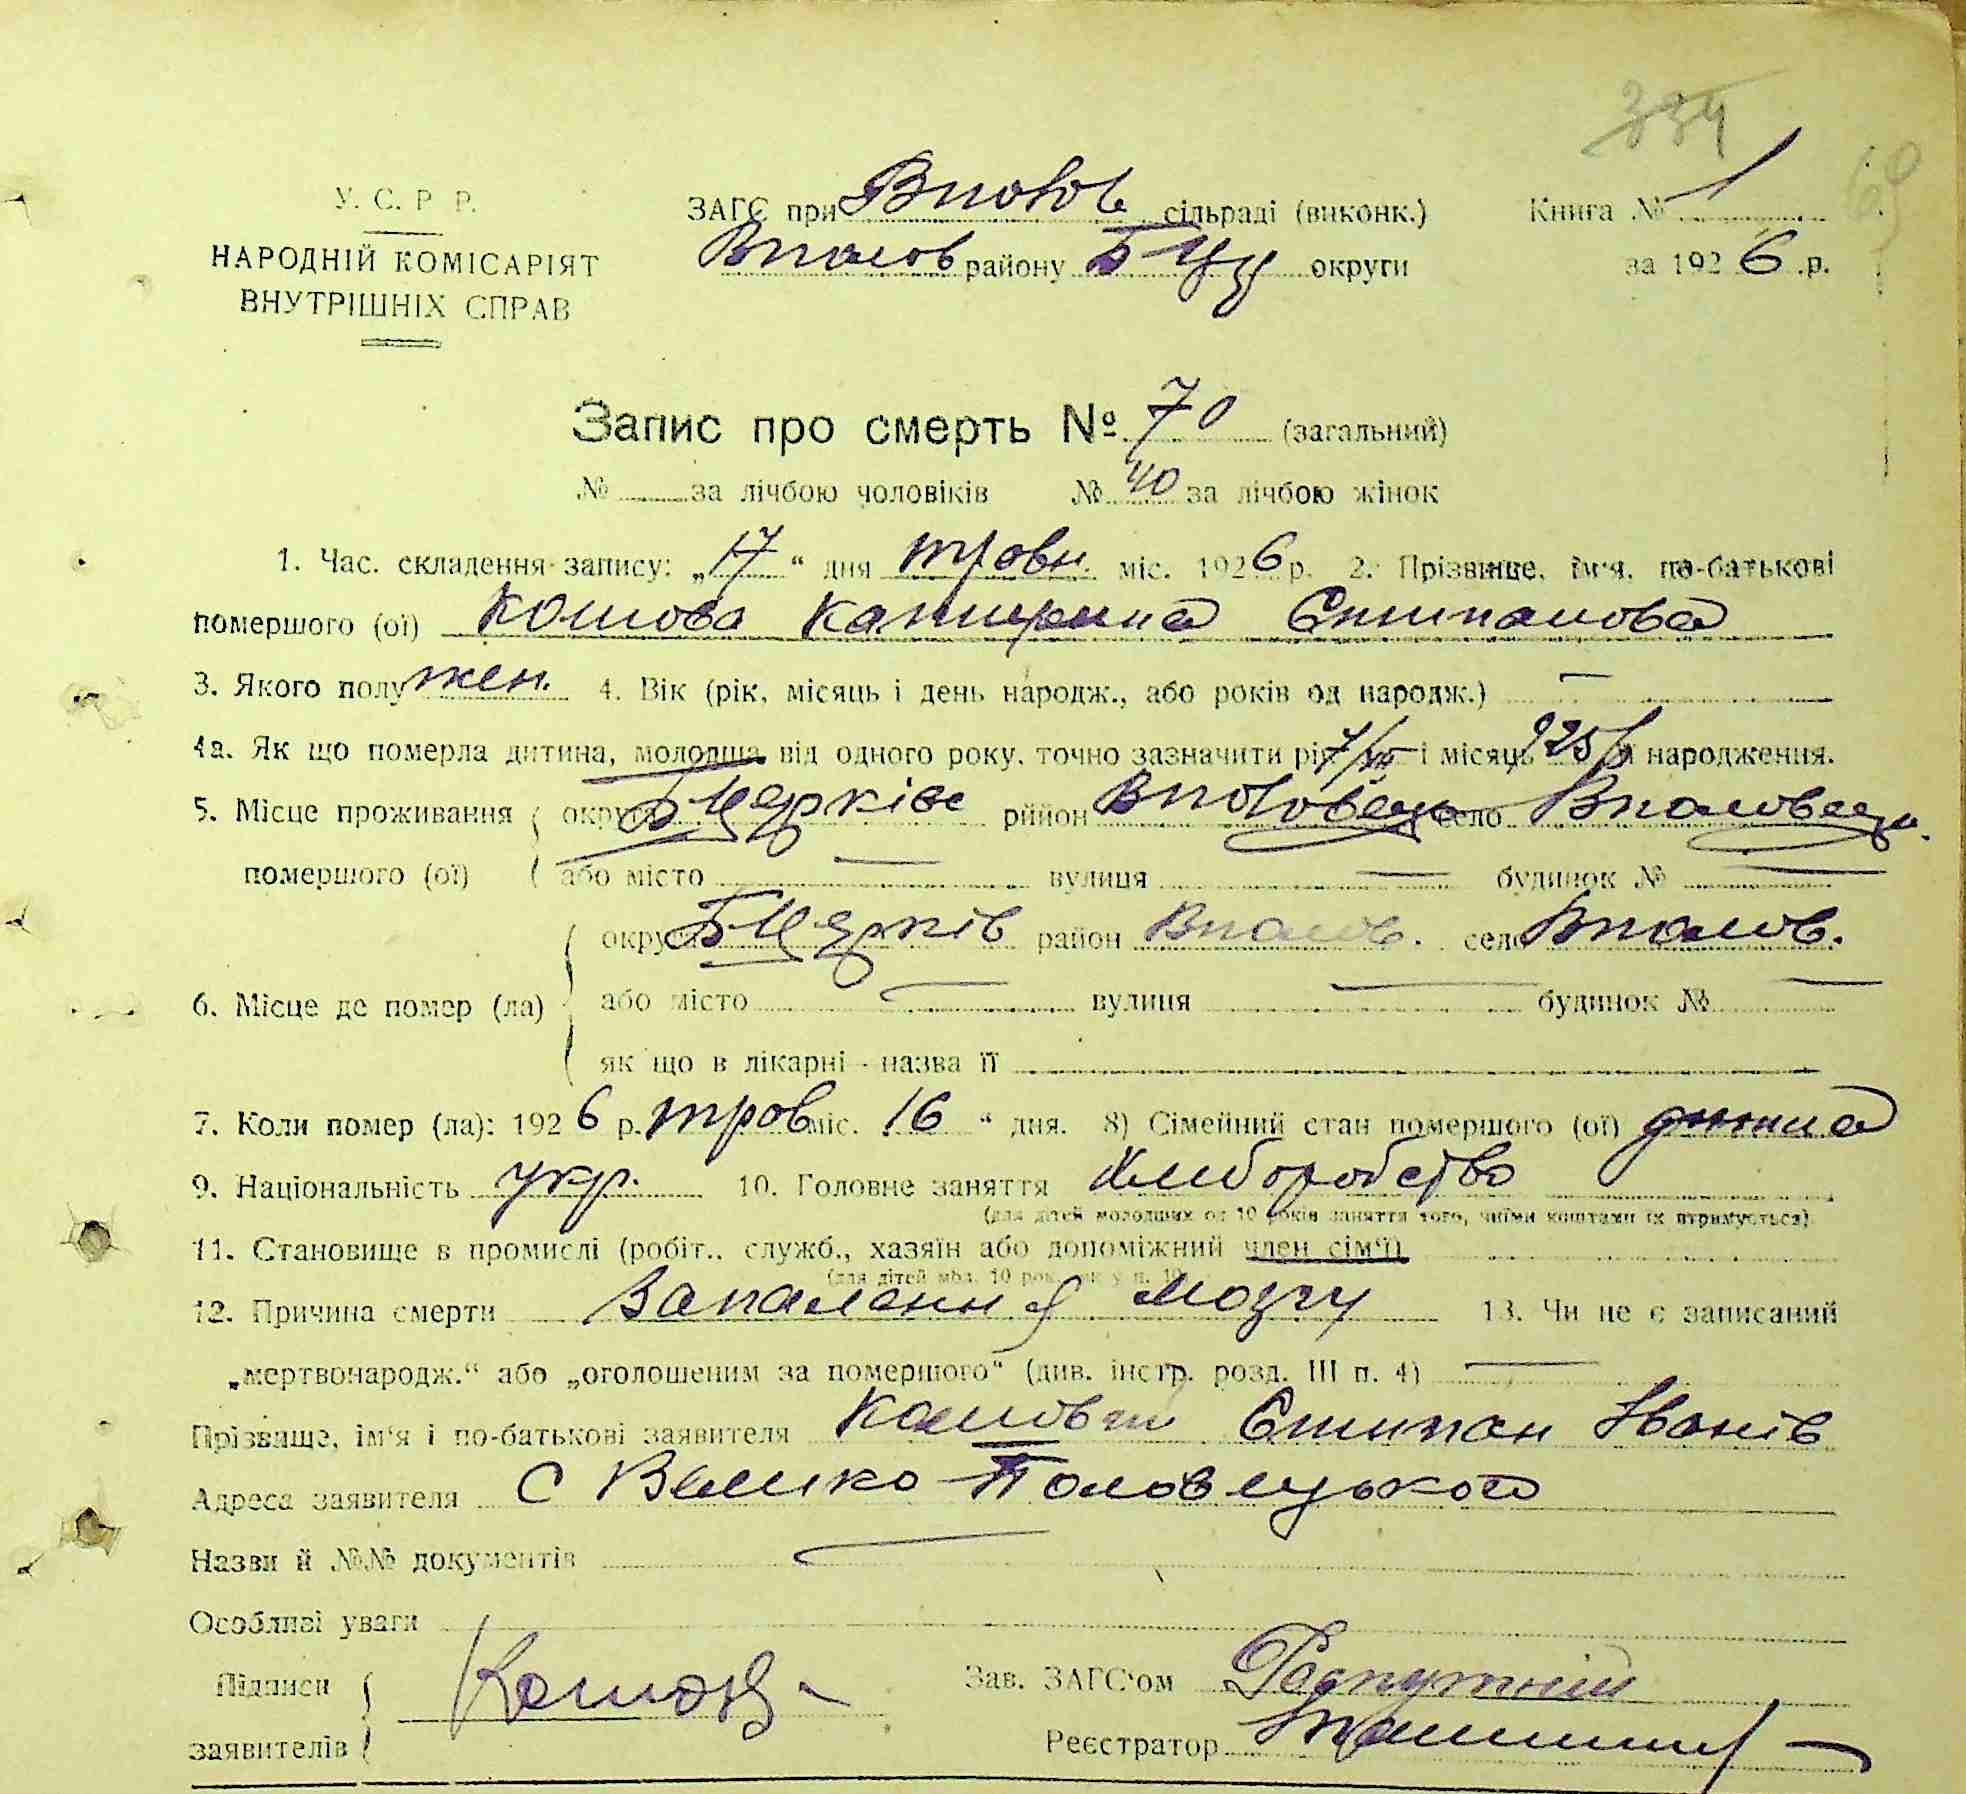 334
69
У. С. Р Р.
НАРОДНІЙ КОМІСАРІЯТ
ВНУТРІШНІХ СПРАВ
ЗАГС при Вполов сільраді (виконк.)
Вполов району БЦ округи
Книга № 1
за 1926.р.
Запис про смерть № 70 (загальний)
№ за лічбою чоловіків № 40 за лічбою жінок
1. Час. складення запису: „17“ дня травн. міс. 1926 р. 2. Прізвище, ім‘я, по-батькові
помершого (ої) Катирина Стипанова
3. Якого полу жен. 4. Вік (рік, місяць і день народж., або років од народж.) —
4а. Як що померла дитина, молодша від одного року, точно зазначити рік 7/XII і місяць 925 її народження.
5. Місце проживання округа БЦерків рййон Вполовец село Вполовец.
помершого (ої) або місто — вулиця — будинок № —
округа БЦерків район Вполов. село Вполов.
6. Місце де помер (ла) або місто — вулиця — будинок № —
як що в лікарні - назва її
7. Коли помер (ла): 1926 р. трав міс. 16 “ дня. 8) Сімейний стан помершого (ої)
9. Національність укр. 10. Головне заняття Хлиборобство
(для дітей молодших од 10 років заняття того, чиїми коштами їх втримується)
11. Становище в промислі (робіт., служб., хазяїн або допоміжний член сім‘ї)
(для дітей мол. 10 рок. як у п. 10)
12. Причина смерти Запалення мозгу 13. Чи не є записаний
„мертвонародж.“ або „оголошеним за помершого“ (див. інстр. розд. III п. 4) —
Прізвище, ім‘я і по-батькові заявителя Стипан Іванів
Адреса заявителя с Велико Половецького
Назви й №№ документів —
Особливі уваги
Підписи
заявителів
Зав. ЗАГС‘ом Распутній
Реєстратор